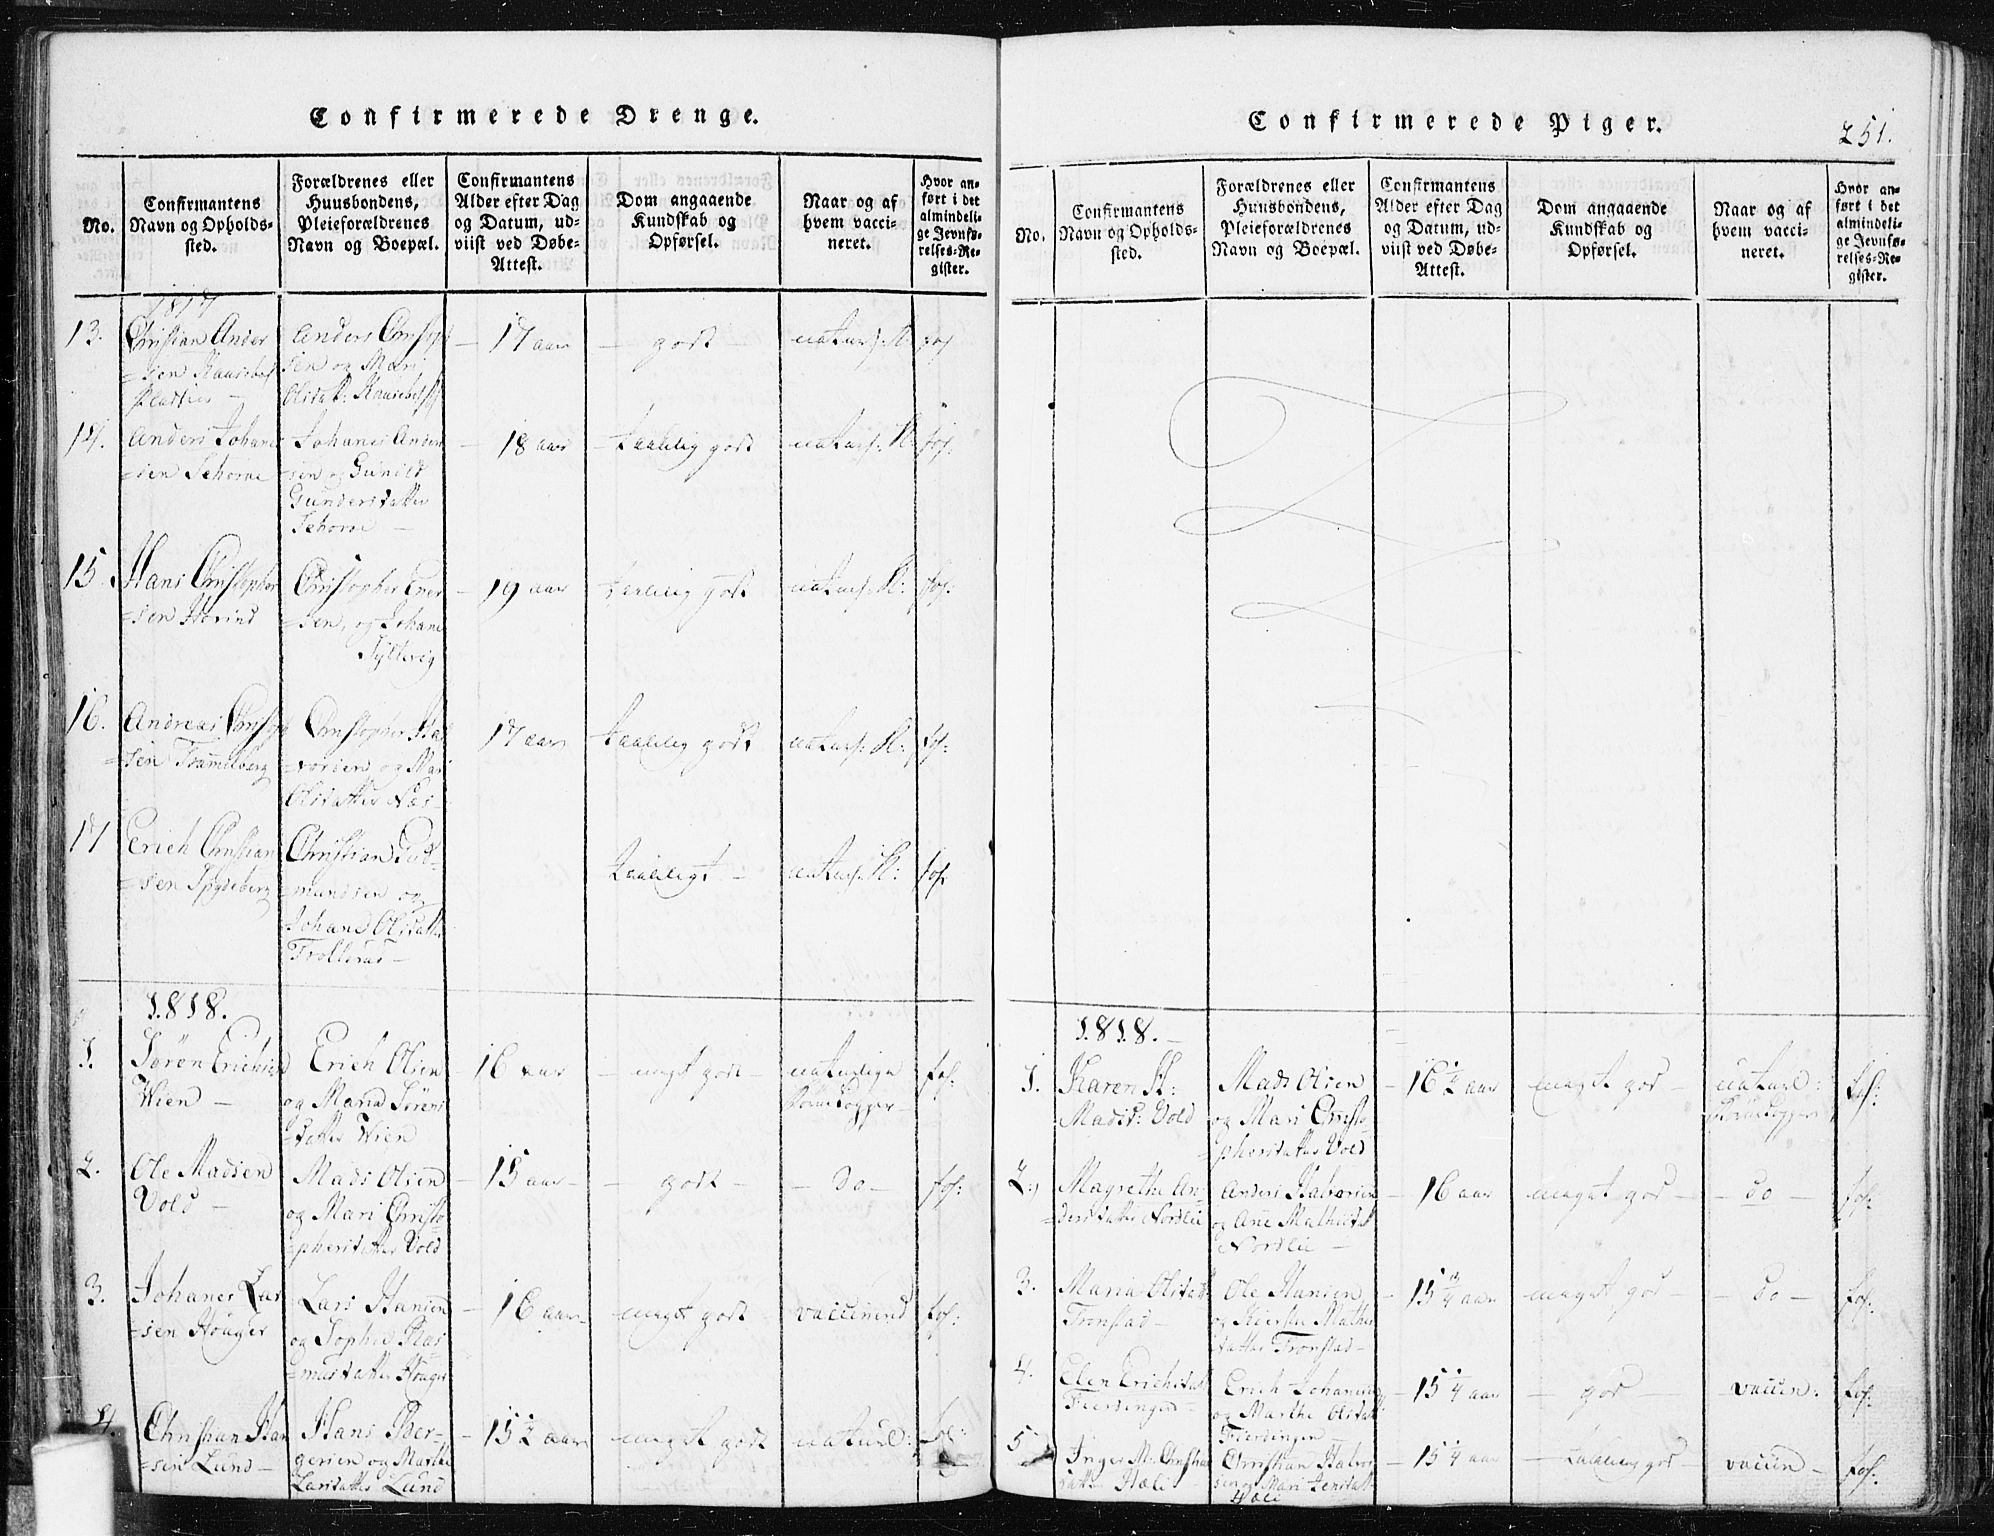 Confirmerede Drenge.
No.
Confirmantens
Navn og Opholds-
sted.
Forældrenes eller
Huusbondens,
Pleieforældrenes
Navn og Boepæl.
Confirmantens
Alder efter Dag
og Datum, ud-
viist ved Døbe-
Attest.
Dom angaaende
Kundskab og
Opførsel.
Naar og af
hvem vacci-
neret.
Hvor an-
ført i det
almindeli-
ge Jevnfø-
relses-Re-
gister.
1817
13.
Christian Ander
=sen
Pladsen —
Anders Christoph
sen og Mari
— 17 aar
— godt
naturl: K:
fol
14.
Anders Johanes
=sen Schorue
Johanes Ander
=sen og Gunild
Gundersdatter
Schorue —
— 18 aar
taalelig godt
naturl: K:
fol:
15.
Hans Christopher
=sen Hovind
Christopher Ener
=sen, og Johane
— 19 aar
taalelig godt
naturl: K:
fol:
16.
Andreas Christoph
=sen
Christopher Hal
=vorsen og Mari
Olsdatter Næs —
17 aar
taalelig godt
naturl: K:
fol:
17
Erich Christian
=sen Spydeberg
Christian Gud-
=mundsen og
Johane Olsdatter
Trollerud —
taaleligt —
naturl: K:
fol
1818.
1.
Søren Erichsen
Wien —
Erich Olsen
og Maria Sørens
=datter Wien
— 16 aar
— meget godt —
naturlige
Børnekopper —
fol:
2.
Ole Madsen
Vold —
Mads Olsen
og Mari Christo
=phersdatter Vold
— 15 aar —
— godt —
— do —
fol:
3.
Johanes Lar
=sen Houger
Lars Hansen
og Sophie Ras
=musdatter Houger
— 16 aar —
meget godt
vaccinerd
fol:
4.
Christian Han
=sen Lund —
Hans Ber-
gersen og Marthe
Larsdatter Lund
— 15 1/2 aar
meget godt
naturl:
fol:
Confirmerede Piger.
251.
No.
Confirmantens
Navn og Opholds-
sted.
Forældrenes eller
Huusbondens,
Pleieforældrenes
Navn og Boepæl.
Confirmantens
Alder efter Dag
og Datum, ud-
viist ved Døbe-
Attest.
Dom angaaende
Kundskab og
Opførsel.
Naar og af
hvem vacci-
neret.
Hvor an-
ført i det
almindeli-
ge Jevnfø-
relses-Re-
gister.
1818. —
1.
Karen K:
Madsd: Vold
Mads Olsen
og Mari Christo
=phersdatter Vold
— 16 1/2 aar
meget god —
naturl:
Børnekopper
fol:
2.
Magrethe An
=dersdatter Nordlie
Anders Halvorsen
og Ane Mathisdat
Nordlie —
— 16 aar
meget god —
— do —
fol:
3.
Maria Olsdatt
Tronstad —
Ole Hansen
og Kiersten Mathis
datter Tronstad —
— 15 3/4 aar
meget god —
— do —
fol:
4.
Elen Erichsdat
Fierdingen —
Erich Johannesen
og Marthe Olsdat
Fierdingen —
— 15 1/4 aar
— god —
vaccin:
fol:
5
Inger M: Christian
datter Hæli —
Christian Halvor
sen og Mari Jensdatt
Hæli
— 15 1/4 aar
— taalelig god —
vaccin —
fol: